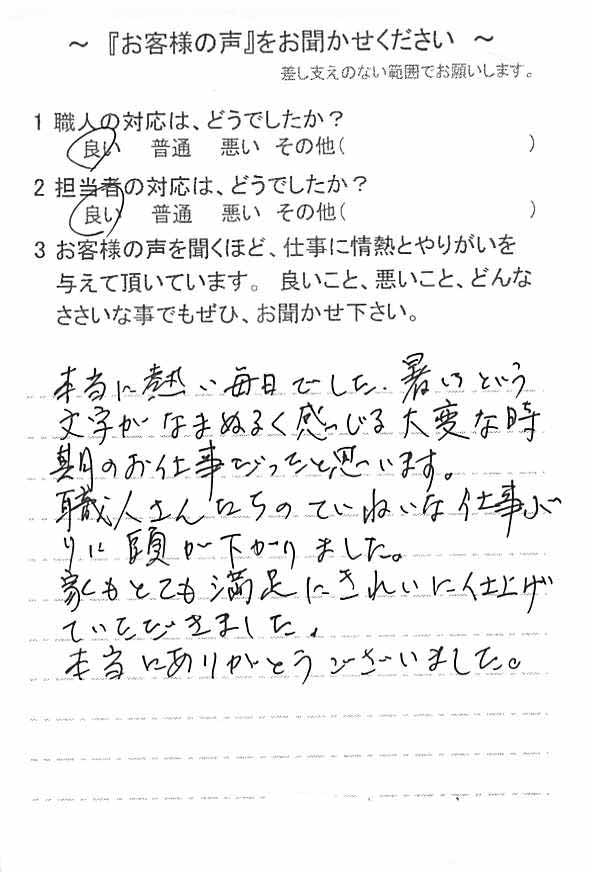 ～ 『お客様の声』をお聞かせください ～
差し支えのない範囲でお願いします。
1 職人の対応は、どうでしたか？
良い 普通 悪い その他( )
2 担当者の対応は、どうでしたか？
良い 普通 悪い その他( )
3 お客様の声を聞くほど、仕事に情熱とやりがいを
与えて頂いています。 良いこと、悪いこと、どんな
ささいな事でもぜひ、お聞かせ下さい。
本当に熱い毎日でした。暑いという
文字がなまぬるく感じる大変な時
期のお仕事だったと思います。
職人さんたちのていねいな仕事ぶ
りに頭が下がりました。
家もとても満足にきれいに仕上げ
ていただきました。
本当にありがとうございました。